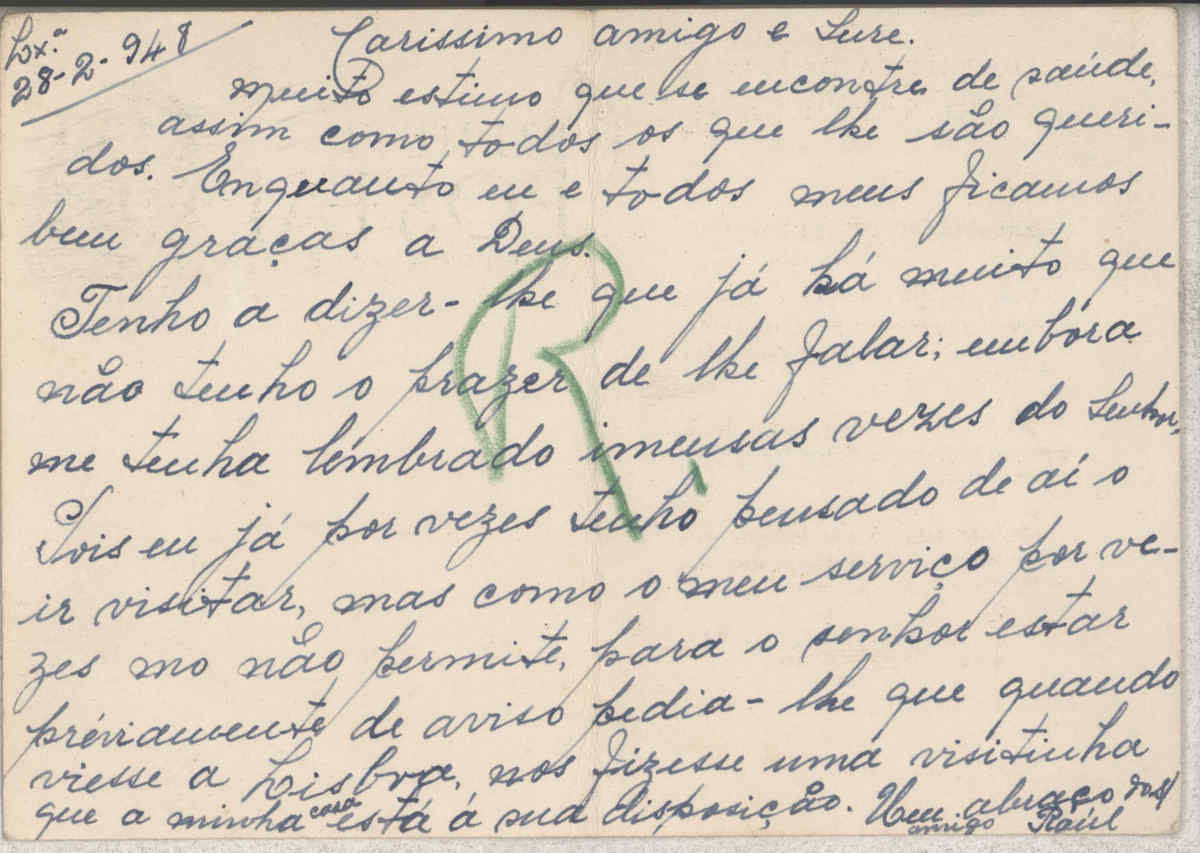 Lx.ª
28-2-948
Carissimo amigo e Sure.
muito estimo que se encontre de saúde,
assim como todos os que lhe são queri-
dos. Enquanto eu e todos meus ficamos
bem graças a Deus.
Tenho a dizer-lhe que já há muito que
não tenho o prazer de lhe falar; embóra
me tenha lembrado imensas vezes do Senhor,
Pois eu já por vezes tenho pensado de aí o
ir visitar, mas como o meu serviço por ve-
zes mo não permite, para o senhor estar
préviamente de aviso pedia-lhe que quando
viesse a Lisboa, nos fizesse uma visitinha
que a minha casa está á sua disposição. Um abraço do
amigo Raúl
R.